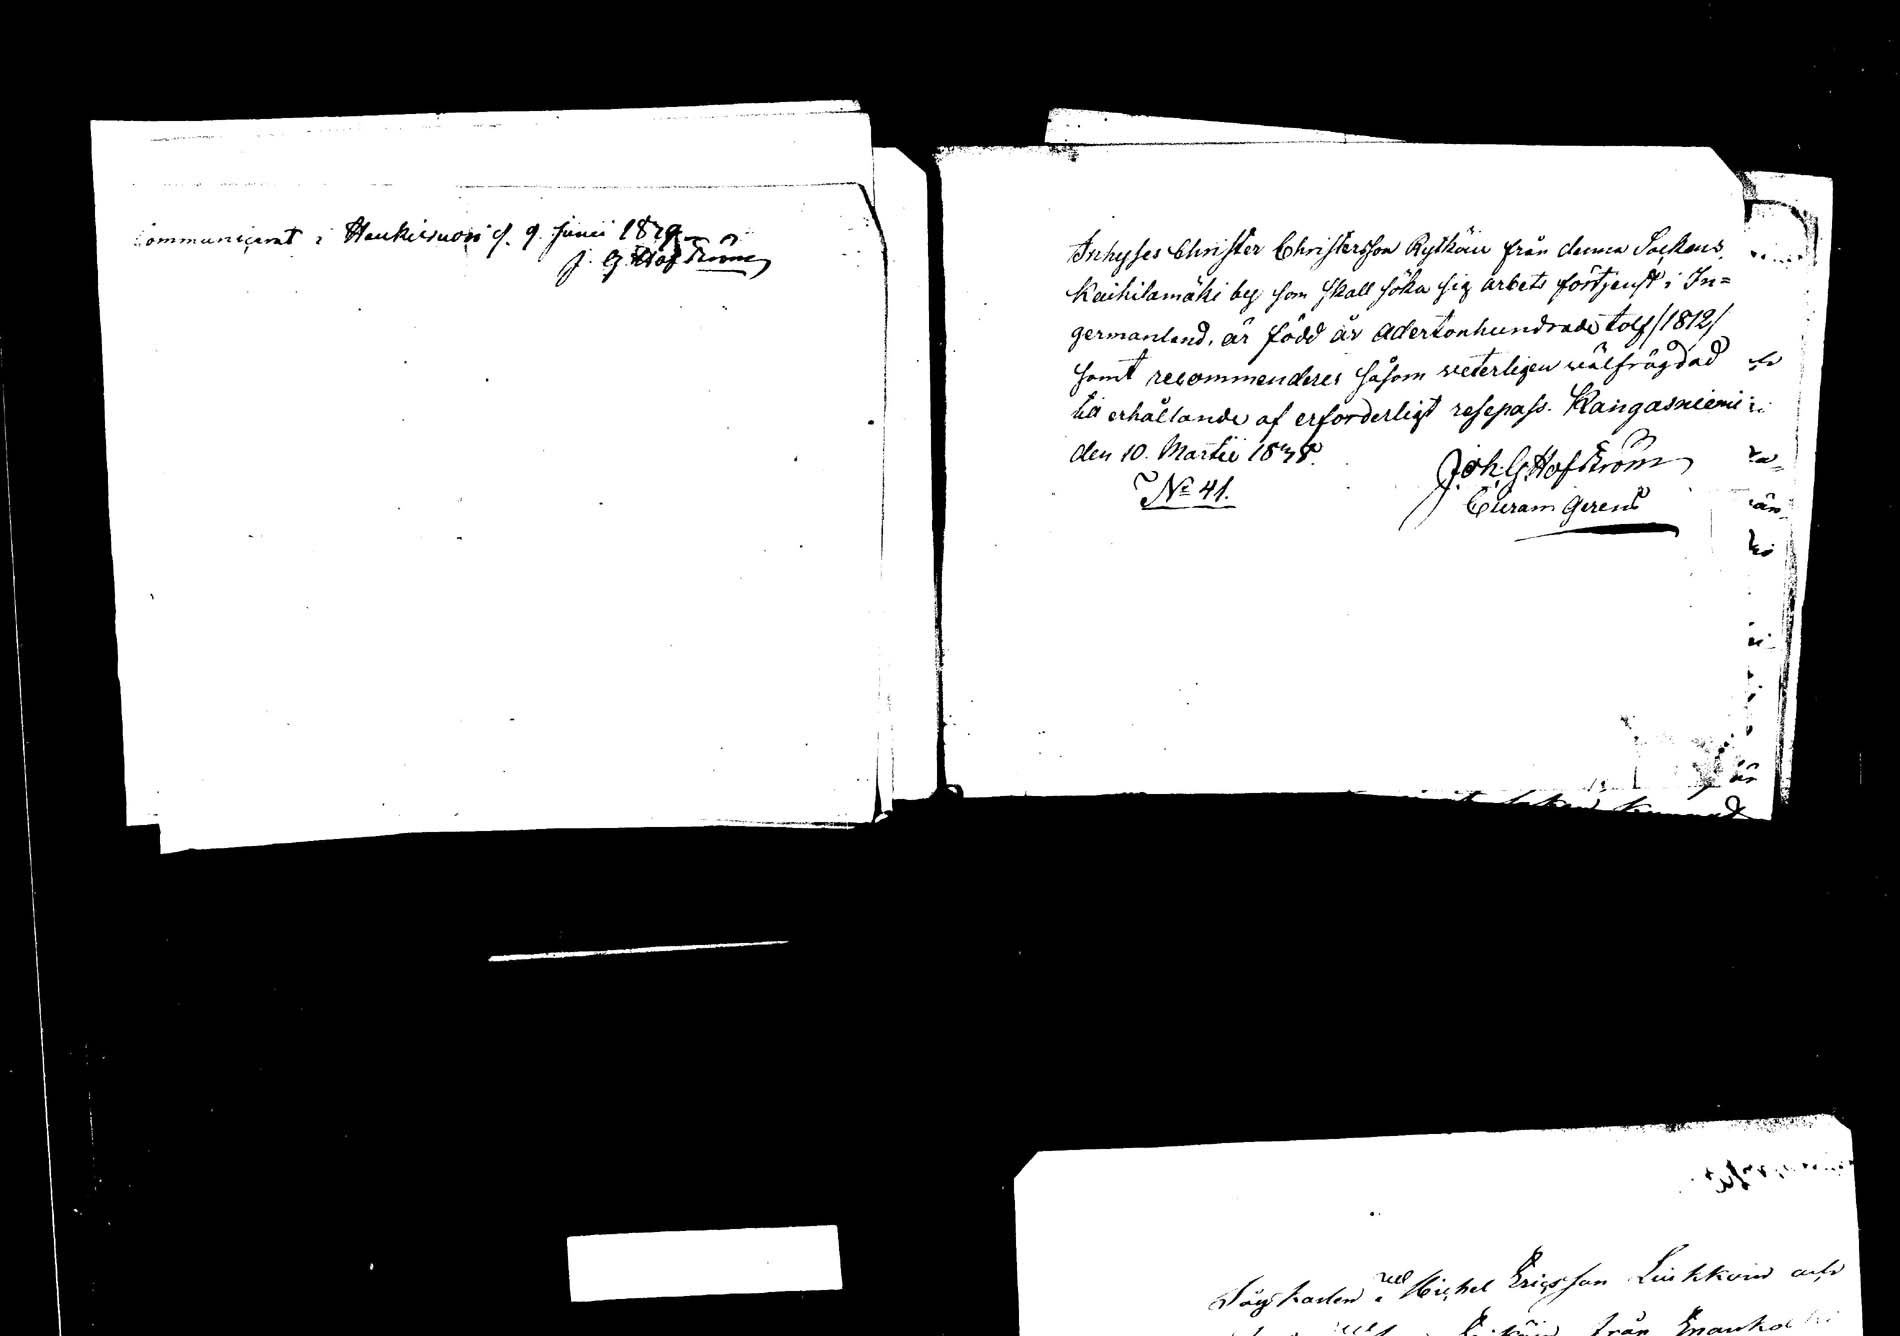 Communicerat i Haukivuori d. 9 Junii 1829
J. G. Hofström
Inhyses Christer Christersson Rytköin från denna Sockens
Kaihilamäki by som skall söka sig arbets förtjenst i In=
germanland, är född år adertonhundrade tolf /1812/
samt recommenderes såsom veterligen välfrägdad
till erhållande af erforderligt resepass. Kangasniemi
den 10. Martii 1838.
Joh. G. Hofström
Curam gerens
No 41.
Michel Ericsson och
från